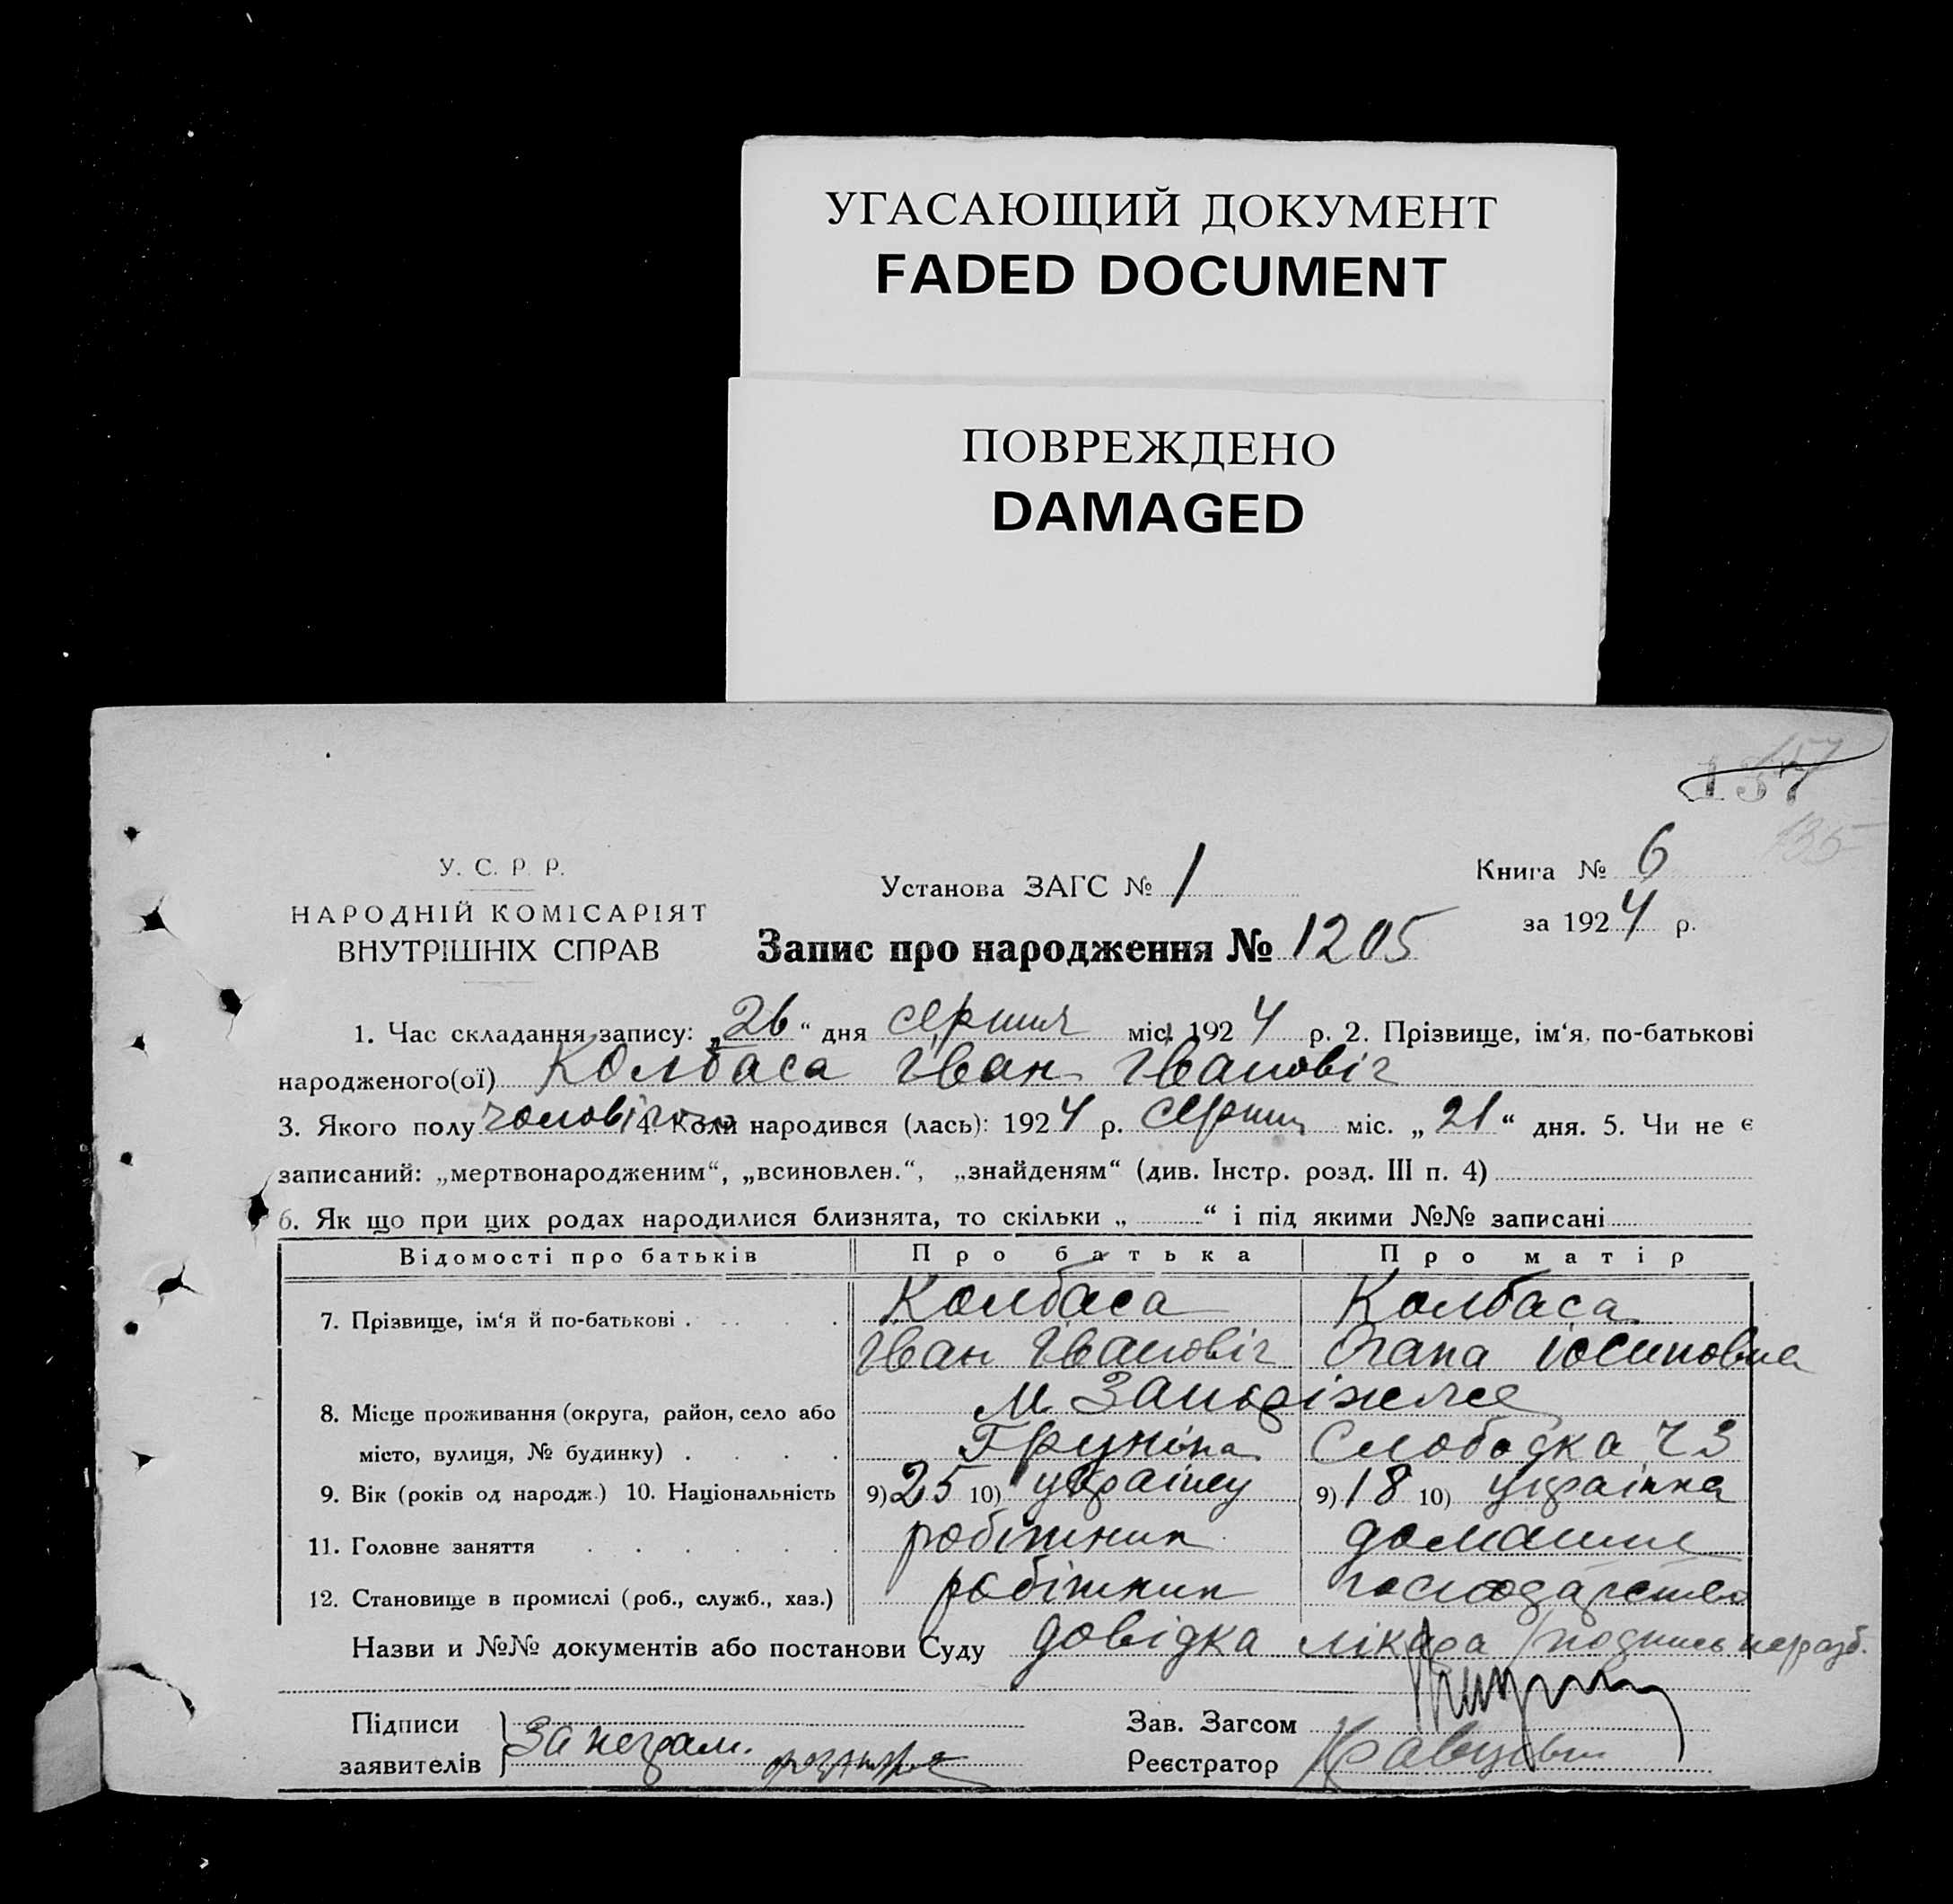 УГАСАЮЩИЙ ДОКУМЕНТ
FADED DOCUMENT
ПОВРЕЖДЕНО
DAMAGED
157
137
135
У. С. Р. Р.
НАРОДНІЙ КОМІСАРІЯТ
ВНУТРІШНІХ СПРАВ
Установа ЗАГС № 1
Книга № 6
за 1924 р.
Запис про народження № 1205
1. Час складання запису: „26“ дня серпня міс. 1924 р. 2. Прізвище, ім‘я, по-батькові
народженого(ої) Колбаса Іван Івановіч
3. Якого полу чоловічого 4. Коли народився (лась): 1924 р. серпня міс. „21“ дня. 5. Чи не є
записаний: „мертвонародженим“, „всиновлен.“, „знайденям“ (див. Інстр. розд. III п. 4)
6. Як що при цих родах народилися близнята, то скільки „ “ і під якими №№ записані
Відомості про батьків Про батька Про матір
7. Прізвище, ім‘я й по-батькові Колбаса Колбаса
Іван Івановіч Юсиповна
8. Місце проживання (округа, район, село або м. Запоріжже
місто, вулиця, № будинку) Слободка 73
9. Вік (років од народж.) 10. Національність 9) 25 10) україну 9) 18 10) українка
11. Головне заняття робітник домашнє
12. Становище в промислі (роб., служб., хаз.) робітник господарство
Назви и №№ документів або постанови Суду довідка лікара /подпись неразб.
Підписи
заявителів За неграм.
Зав. Загсом
Реєстратор